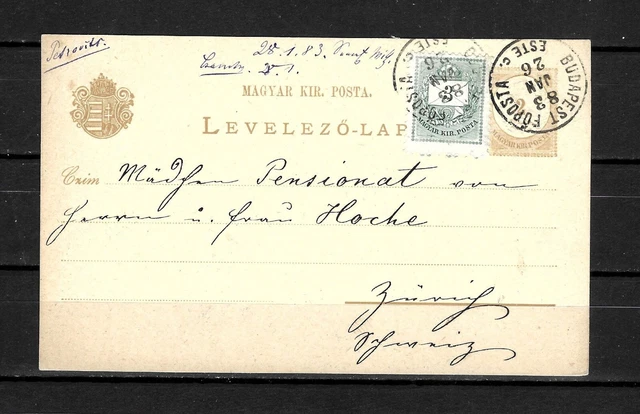 Petrovits.
28.1.83.
MAGYAR KIR. POSTA.
LEVELEZŐ-LAP
3
MAGYAR KIR. POSTA
BUDAPEST FŐPOSTA
83
JAN
26
ESTE
BUDAPEST FŐPOSTA
83
JAN
26
ESTE
2
MAGYAR KIR. POSTA
Czím Mädchen Pensionat von
Herrn u. Frau Hoche
Zürich
Schweiz